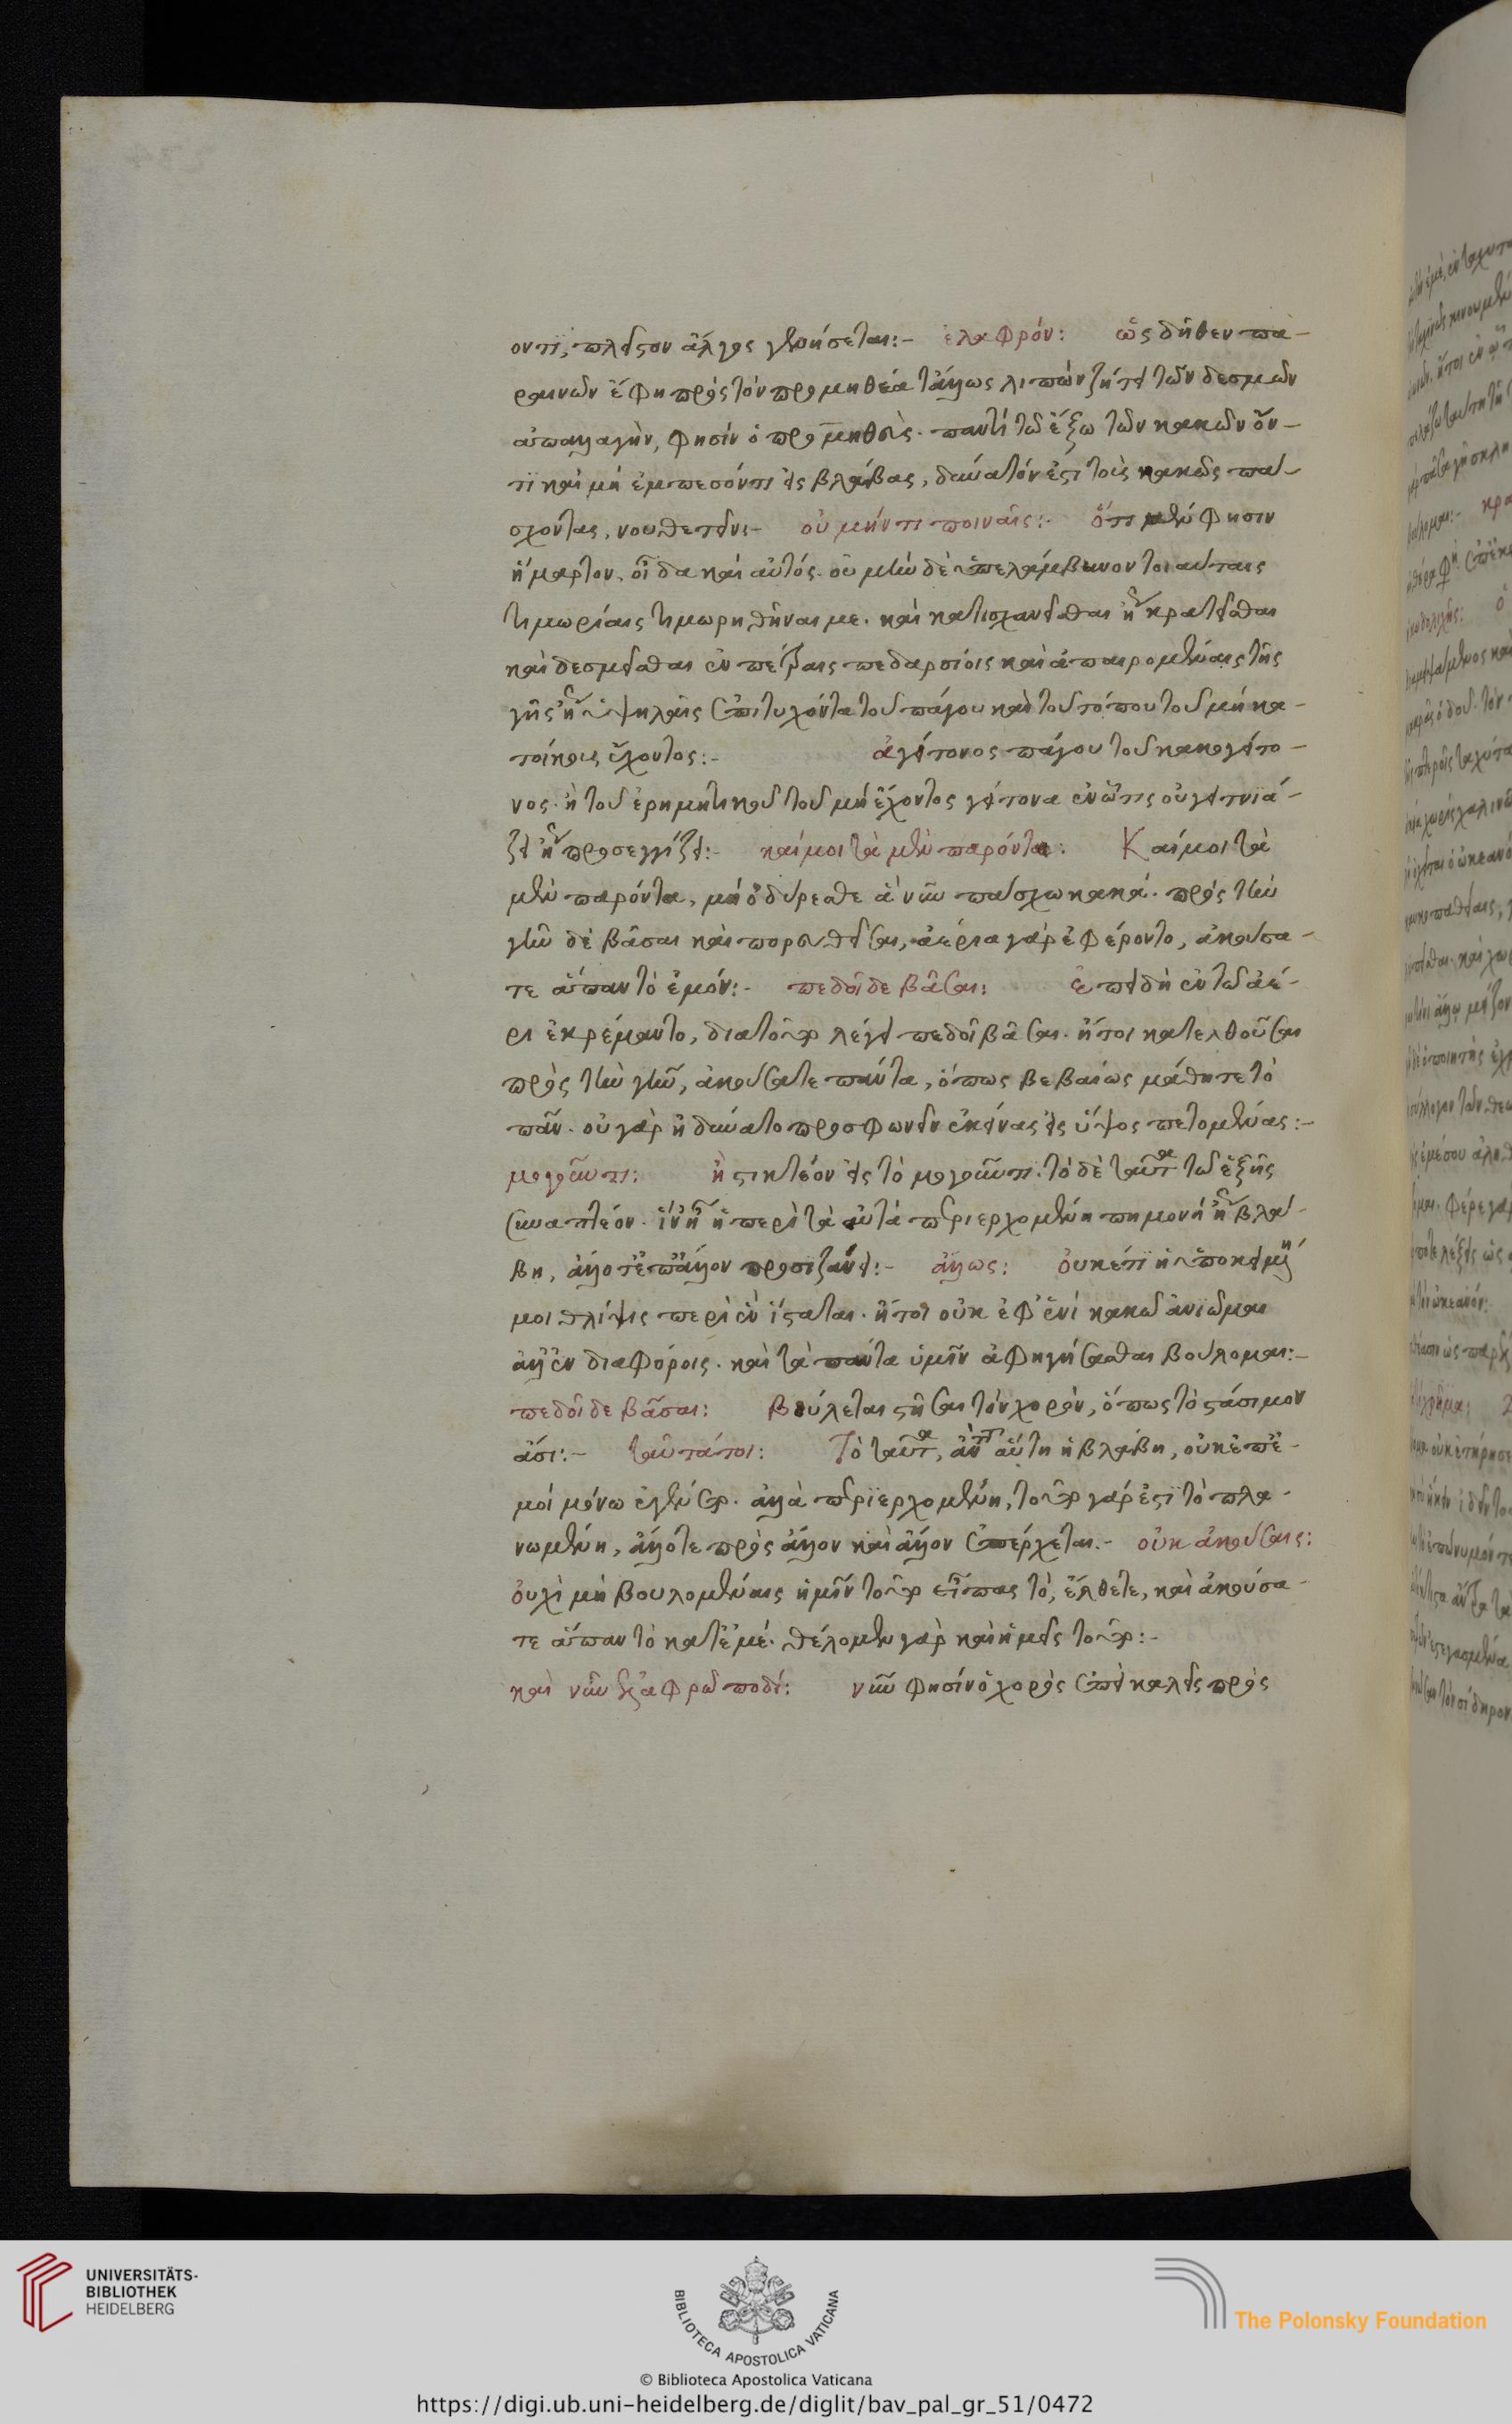 οντι, πλεῖον ἄλγος γενήσεται:– ἐλαφρόν: ὡς δῆθεν πα–
ραινῶν ἔφη πρὸς τὸν προμηθέα τἄλλως λιπὼν ζήτει τῶν δεσμῶν
ἀπαλλαγὴν, φησὶν ὁ προμηθεὺς. παντὶ τῷ ἔξω τῶν κακῶν ὄν–
τι καὶ μὴ ἐμπεσόντι εἰς βλάβας, δυνατόν ἐστι τοὺς κακῶς πά–
σχοντας, νουθετεῖν:– οὐ μήν τι ποιναῖς:– ὅτι μὲν φησιν
ἥμαρτον, οἶδα καὶ αὐτός. οὐ μὴν δὲ ὑπελάμβανον τοιαύταις
τιμωρίαις τιμωρηθῆναι με. καὶ κατισχανεῖσθαι ἤγουν κρατεῖσθαι
καὶ δεσμεῖσθαι ἐν πέτραις πεδαρσίοις καὶ ἀπαιρομέναις τῆς
γῆς ἤγουν ὑψηλαῖς ἐπιτυχόντα τοῦ πάγου καὶ τοῦ τόπου τοῦ μὴ κα–
τοίκους ἔχοντος:– ἀγείτονος πάγου τοῦ κακογείτο–
νος. ἢ τοῦ ἐρημητικοῦ τοῦ μὴ ἔχοντος γείτονα ἐν ᾧ τις οὐ γειτνιά–
ζει ἤγουν προσεγγίζει:– καί μοι τὰ μὲν παρόντα: Καί μοι τὰ
μὲν παρόντα, μὴ ὀδύρεσθε ἃ νῦν πάσχω κακά. πρὸς τὴν
γῆν δὲ βᾶσαι καὶ πορευθεῖσαι, ἀέρια γὰρ ἐφέροντο, ἀκούσα–
τε ἅπαν τὸ ἐμόν:– πεδοῖ δὲ βᾶσαι: ἐπειδὴ ἐν τῷ ἀέ–
ρι ἐκρέμαντο, διατοῦτο λέγει πεδοῖ βᾶσαι. ἤτοι κατελθοῦσαι
πρὸς τὴν γῆν, ἀκούσατε πάντα, ὅπως βεβαίως μάθητε τὸ
πᾶν. οὐ γὰρ ἠδύνατο προσφωνεῖν ἐκείνας εἰς ὕψος πετομένας:–
μογοῦντι: ἢ στικτέον εἰς τὸ μογοῦντι. τὸ δὲ ταῦτα τῷ ἑξῆς
συναπτέον. ἵν᾽ ᾖ ἡ περὶ τὰ αὐτὰ περιερχομένη πημονὴ ἤγουν βλά–
βη, ἄλλοτ᾽ ἐπ᾽ ἄλλον προσιζάνει:– ἄλλως: οὐκέτι ἡ ὑποκειμένη
μοι θλίψις περὶ ἓν ἵσταται. ἤτοι οὐκ ἐφ᾽ ἑνὶ κακῷ ἀνιῶμαι
ἀλλ᾽ ἐν διαφόροις. καὶ τὰ πάντα ὑμῖν ἀφηγήσασθαι βούλομαι:–
πεδοῖ δὲ βᾶσαι: βούλεται στῆσαι τὸν χορὸν, ὅπως τὸ στάσιμον
ᾄσῃ:– ταῦτά τοι: Τὸ ταῦτα, ἀντὶ αὕτη ἡ βλάβη, οὐκ ἐπ᾽ ἐ–
μοὶ μόνῳ ἐγένετο. ἀλλὰ περιερχομένη, τοῦτο γάρ ἐστι τὸ πλα–
νωμένη, ἄλλοτε πρὸς ἄλλον καὶ ἄλλον ἐπέρχεται.– οὐκ ἀκούσαις:
οὐχὶ μὴ βουλομέναις ἡμῖν τοῦτο εἶπας τὸ, ἔλθετε, καὶ ἀκούσα–
τε ἅπαν τὸ κατ᾽ ἐμέ. θέλομεν γὰρ καὶ ἡμεῖς τοῦτο:–
καὶ νῦν ἐλαφρῷ ποδί: νῦν φησὶν ὁ χορὸς ἐπεὶ καλεῖς πρὸς
UNIVERSITÄTS-
BIBLIOTHEK
HEIDELBERG
BIBLIOTECA APOSTOLICA VATICANA
The Polonsky Foundation
© Biblioteca Apostolica Vaticana
https://digi.ub.uni-heidelberg.de/diglit/bav_pal_gr_51/0472